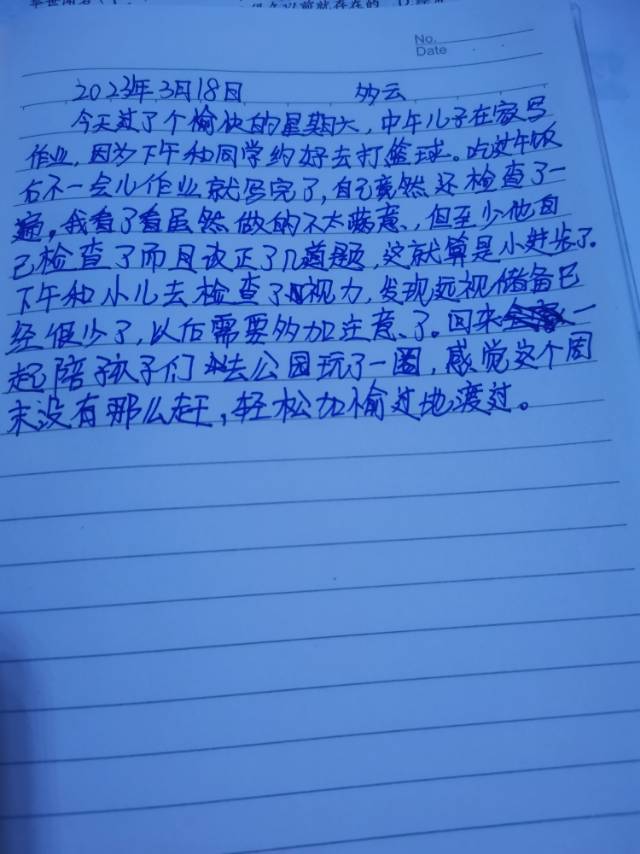 No.
Date
2023年3月18日 多云
今天过了个愉快的星期六,中午儿子在家写
作业,因为下午和同学约好去打篮球。吃过午饭
右不一会儿作业就写完了,自己竟然还检查了一
遍。我看了看虽然做的不太满意,但至少他自
己检查了而且改正了几道题,这就算是小进步了。
下午和小儿去检查了视力,发现远视储备已
经很少了,以后需要多加注意了。回来一
起陪孩子们去公园玩了一圈,感觉这个周
末没有那么赶,轻松加愉过地渡过。